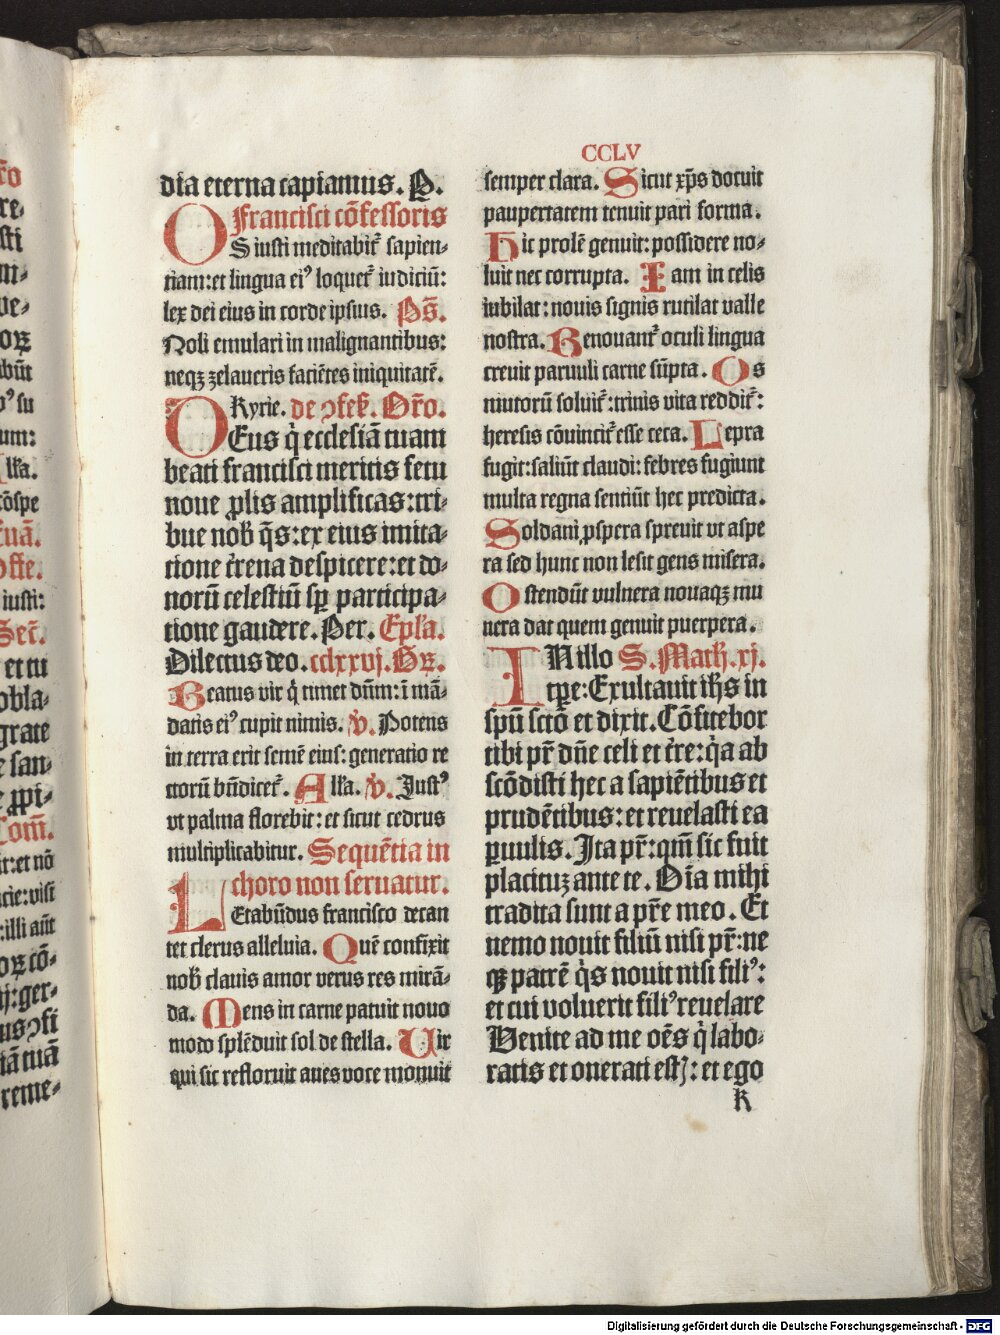 CCLV
dia eterna capiamus. P.
Francisci cōfessoris
OS iusti meditabit᷑ sapien-
tiam: et lingua eiꝰ loquet᷑ iudiciū:
lex dei eius in corde ipsius. Ps̄.
Noli emulari in malignantibus:
neqꝫ zelaueris faciētes iniquitatē.
Kyrie. de ꝯfes̄. Or̄o.
DEus q̇ ecclesiā tuam
beati francisci meritis fetu
noue ꝓlis amplificas: tri-
bue nob̄ q̄s: ex eius imita-
tione t̄rena despicere: et do-
norū celestiū sꝑ participa-
tione gaudere. Per. Epl̄a.
Dilectus deo. cclxxvj. Gꝝ.
Beatus vir q̇ timet dn̄m: ī mā-
datis eiꝰ cupit nimis. ℣. Potens
in terra erit semē eius: generatio re
ctorū bn̄dicet᷑. All̄a. ℣. Justꝰ
vt palma florebit: et sicut cedrus
multiplicabitur. Sequētia in
choro non seruatur.
LEtabūdus francisco decan
tet clerus alleluia. Quē confixit
nob̄ clauis amor verus res mirā-
da. Mens in carne patuit nouo
modo splēduit sol de stella. Vir
qui sic refloruit aues voce monuit
semper clara. Sicut xp̄s docuit
paupertatem tenuit pari forma.
Hic prolē genuit: possidere no-
luit nec corrupta. Iam in celis
iubilat: nouis signis rutilat valle
nostra. Renouant᷑ oculi lingua
creuit paruuli carne sūpta. Os
mutorū soluit᷑: trinis vita reddit᷑:
heresis cōuincit᷑ esse ceca. Lepra
fugit: saliūt claudi: febres fugiunt
multa regna sentiūt hec predicta.
Soldani ꝓspera spreuit vt aspe
ra sed hunc non lesit gens misera.
Ostendūt vulnera nouaqꝫ mu
nera dat quem genuit puerpera.
IN illo S. Math. xj.
tꝑe: Exultauit ih̄s in
spū sctō et dixit. Cōfitebor
tibi pr̄ dn̄e celi et t̄re: q̇a ab
scōdisti hec a sapiētibus et
prudētibus: et reuelasti ea
ꝑuulis. Ita pr̄: qm̄ sic fuit
placituꝫ ante te. Oīa mihi
tradita sunt a pr̄e meo. Et
nemo nouit filiū nisi pr̄: ne
qꝫ patrē q̇s nouit nisi filiꝰ:
et cui voluerit filiꝰ reuelare
Venite ad me oēs q̇ labo-
ratis et onerati estꝭ: et ego
k
Digitalisierung gefördert durch die Deutsche Forschungsgemeinschaft - DFG